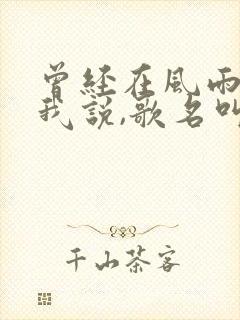 曾经在風雨
我説,歌名叫
千山茶客